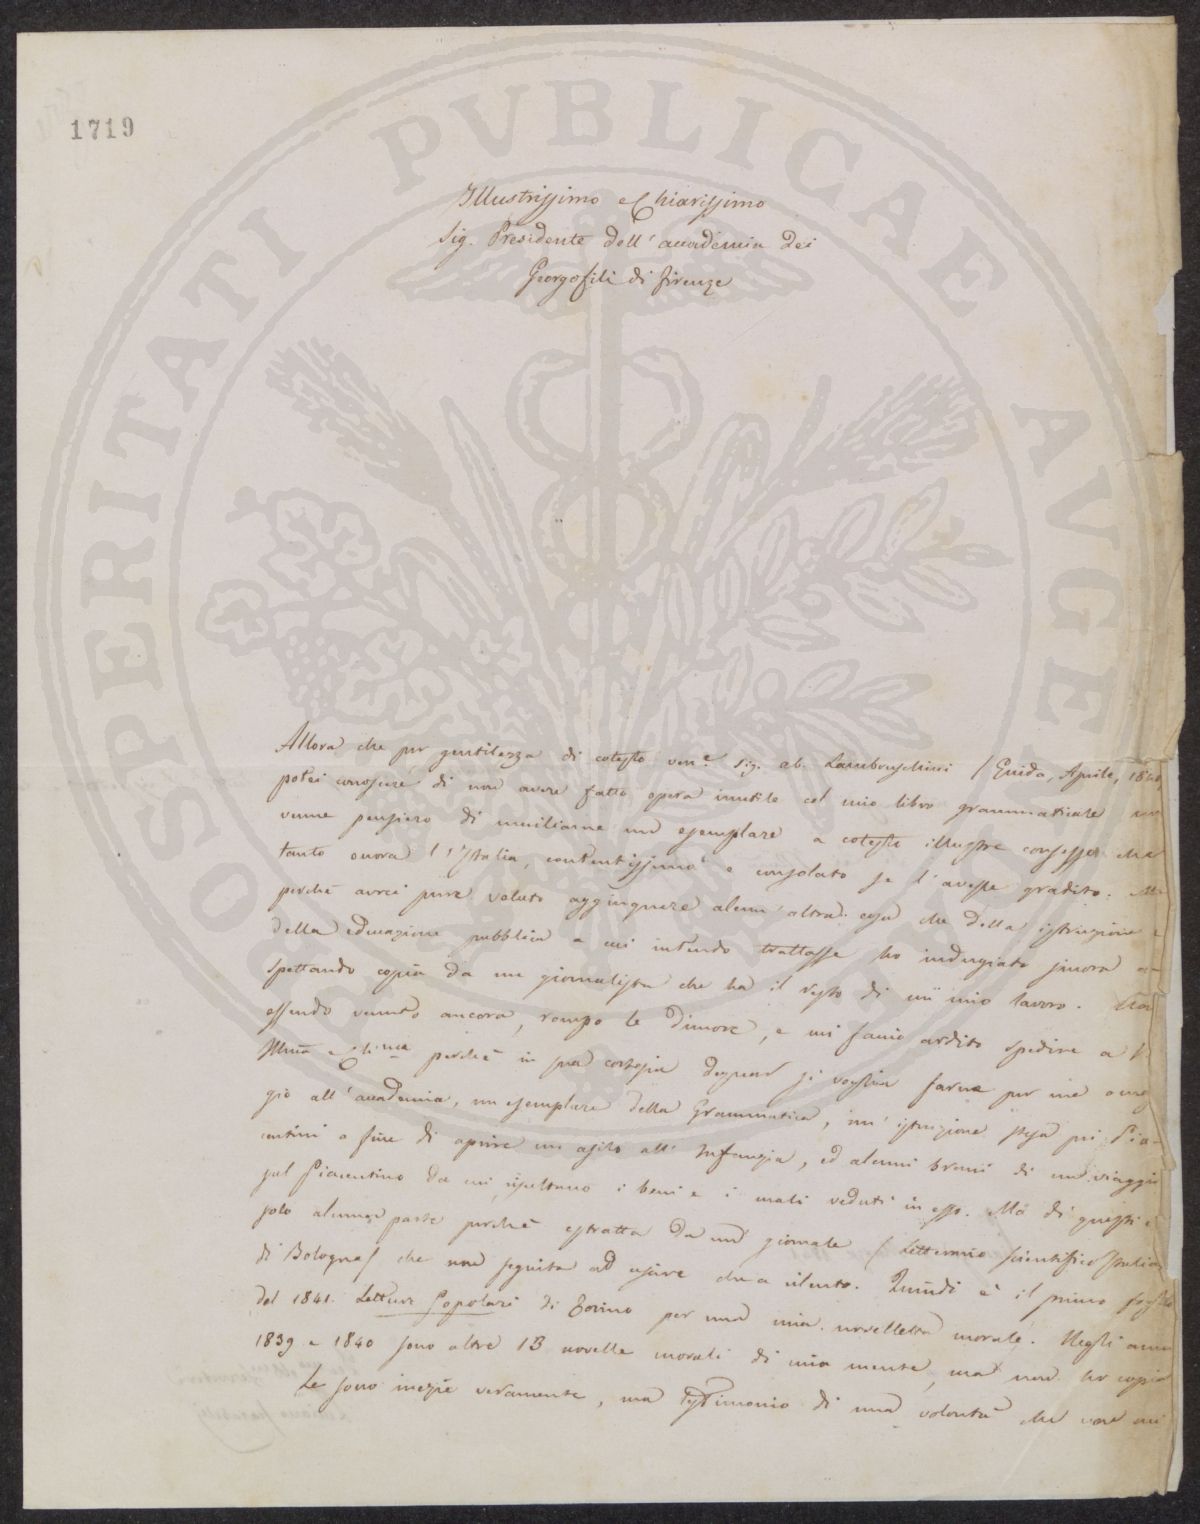 1719
Illustrissimo e Chiarissimo
Sig. Presidente dell'accademia dei
Georgofili di Firenze
PROSPERITATI PVBLICAE AVGE
Allora che per gentilezza di cotesto Sig. ab. Lambruschini (Guida, Aprile, 1840,
potei conoscere di non avere fatto opera inutile col mio libro grammaticale mi
venne pensiero di umiliarne un esemplare a cotesto illustre consesso che
tanto onora l'Italia, contentissimo e consolato se l'avesse gradito. Ma
perchè avrei pure voluto aggiungere alcun'altra cosa che della istruzione e
della educazione pubblica a cui intendo trattasse ho indugiato sinora a
spettando copia da un giornalista che ha il resto di un mio lavoro. Non
essendo venuto ancora, rompo le dimore, e mi faccio ardito spedire a V.
Illma e Chma perchè in sua cortesia degnar si voglia farne per me omag
gio all'accademia, un esemplare della Grammatica, un'istruzione stesa pei Pia-
centini a fine di aprire un asilo all'Infanzia, ed alcuni brani di un viaggio
sul Piacentino da cui risultano i beni e i mali veduti in esso. Ma di questi è
solo alcuna parte perchè estratta da un giornale (Letterario scientifico Italia
di Bologna) che non seguita ad uscire che a rilento. Quindi è il primo foglio
del 1841. Letture Popolari di Torino per una mia novelletta morale. Negli anni
1839 e 1840 sono altre 13 novelle morali di mia mente, ma non ho copia
Le sono inezie veramente, ma testimonio di una volontà che non mi